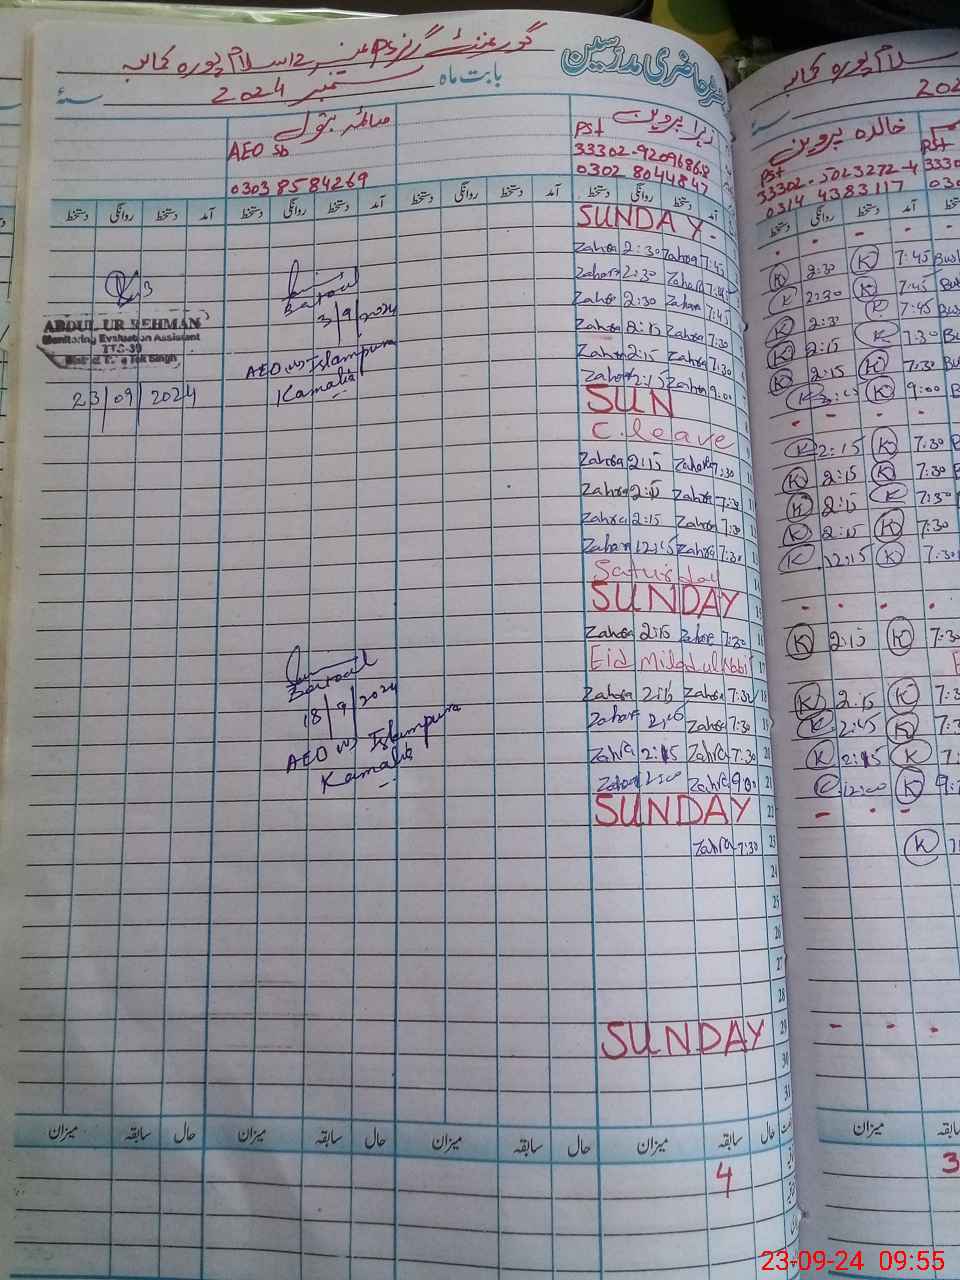 رجسٹر حاضری مدرسین
گورنمنٹ گرلز PS اسلام پورہ کمالیہ
بابت ماہ ستمبر 2024 سنہ
زہرا پروین
PST
33302-9209686-8
0302 8044847
AEO
0303 8584269
آمد دستخط روانگی دستخط آمد دستخط روانگی دستخط آمد دستخط روانگی دستخط آمد دستخط روانگی دستخط
SUNDAY
Zahra 2:30 Zahra 7:45
Zahra 2:30 Zahra 7:45
Zahra 2:30 Zahra 7:45
Zahra 2:15 Zahra 7:30
Zahra 2:15 Zahra 7:30
Zahra 2:15 Zahra 9:00
SUN
C. leave
Zahra 2:15 Zahra 7:30
Zahra 2:15 Zahra 7:30
Zahra 2:15 Zahra 7:30
Zahra 12:15 Zahra 7:30
Saturday
SUNDAY 15
Zahra 2:15 Zahra 7:30 16
Eid Milad ul Nabi 17
Zahra 2:15 Zahra 7:30 18
Zahra Zahra 7:30 19
Zahra 2:15 Zahra 7:30 20
Zahra 12:00 Zahra 9:00 21
SUNDAY 22
Zahra 7:30 23
24
25
26
27
28
SUNDAY 29
30
31
3/9/2024
AEO (W) Islampura
Kamalia
ABDUL UR REHMAN
Monitoring Evaluation Assistant
23/09/2024
18/9/2024
AEO (W) Islampura
Kamalia
حال سابقہ میزان حال سابقہ میزان حال سابقہ میزان حال سابقہ میزان
4
اسلام پورہ کمالیہ
202
خالدہ پروین
PST
33302-5023272-4
0314 4383117
آمد دستخط روانگی دستخط
K 2:30 K 7:45
K 2:30 K 7:45
K 2:30 K 7:45
K 2:15 K 7:30
K 2:15 K 7:30
K K 9:00
K 2:15 K 7:30
K 2:15 K 7:30
K 2:15 K 7:30
K 2:15 K 7:30
K 12:15 K 7:30
K 2:15 K 7:3
K 2:15 K 7:3
K 2:45 K 7:3
K 2:15 K 7:
K 12:00 K 9:
K
میزان
3
23-09-24 09:55